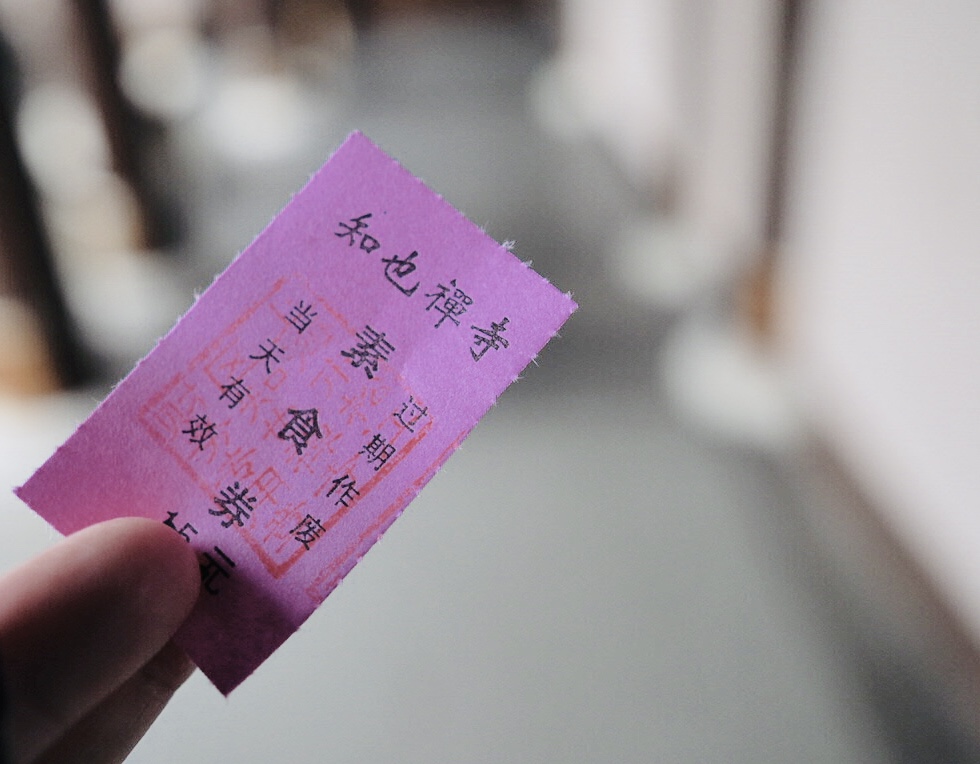 知也禪寺
素食券
当天有效
过期作废
15元